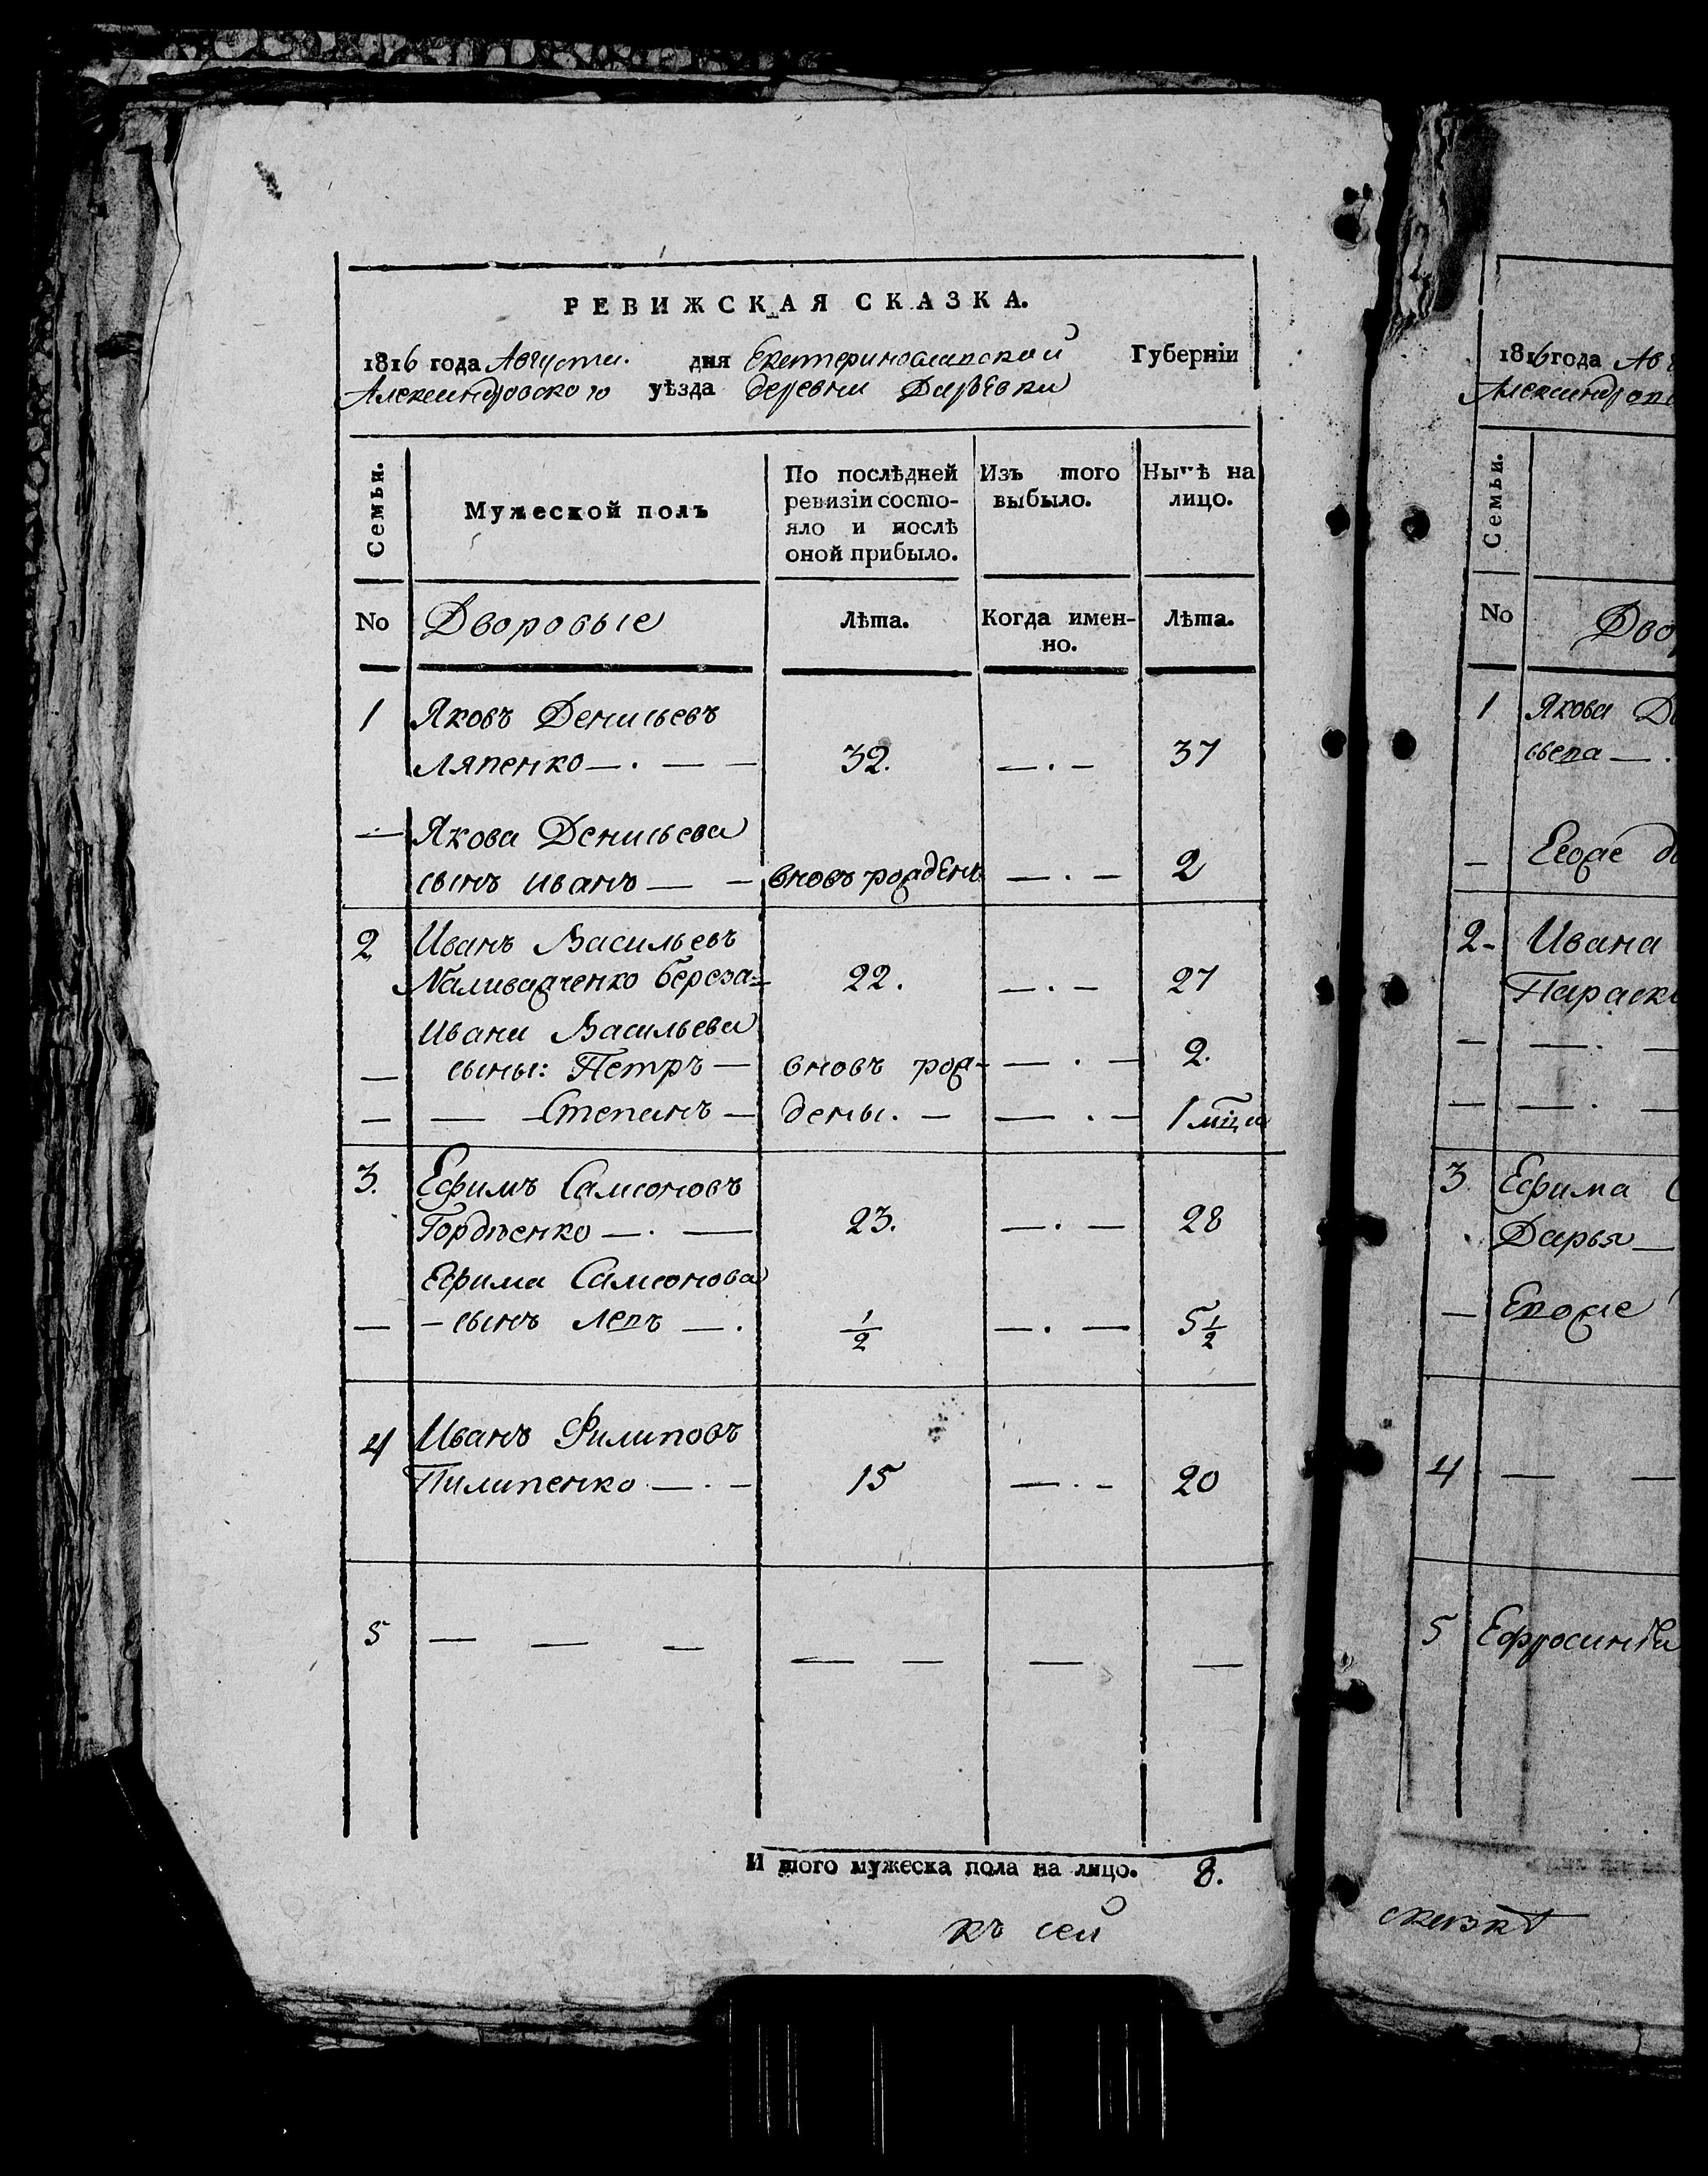 РЕВИЖСКАЯ СКАЗКА.
1816 года Августа. дня Екатеринославской Губерніи
Александровского уѣзда деревни Дарѣевки
Семьи.
Мужеской полъ
По послѣдней
ревизіи состо-
яло и послѣ
оной прибыло.
Изъ того
выбыло.
Нынѣ на
лицо.
No Дворовые Лѣта. Когда имен-
но. Лѣта.
1 Яковъ Денисьевъ
Ляпенко — . — — 32. — . — 37
— Якова Денисьева
сынъ Иванъ — — вновь рожденъ — . — 2
2 Иванъ Васильевъ
Наливадченко 22. — . — 27
Ивана Васильева
— сыны: Петръ — вновь рож- — . — 2.
— — Степанъ — дены. — — . — 1 мца
3. Ефимъ Самсоновъ
Гордѣенко — . — 23. — . — 28
Ефима Самсонова
— — сынъ Левъ — . 1/2 — . — 5 1/2
4 Иванъ Филиповъ
Пилипенко — . — 15 — . — 20
5 — — — — — — —
И того мужеска пола на лицо. 8.
къ сей
1816 года Ав
Александров
Семьи.
No Дво
1 Якова Де
сьева — .
— Евоже
2 - Ивана
Параск
— — . —
— — . —
3 Ефима С
Дарья —
— Евоже
4 — —
5 Ефросинья
сказкѣ